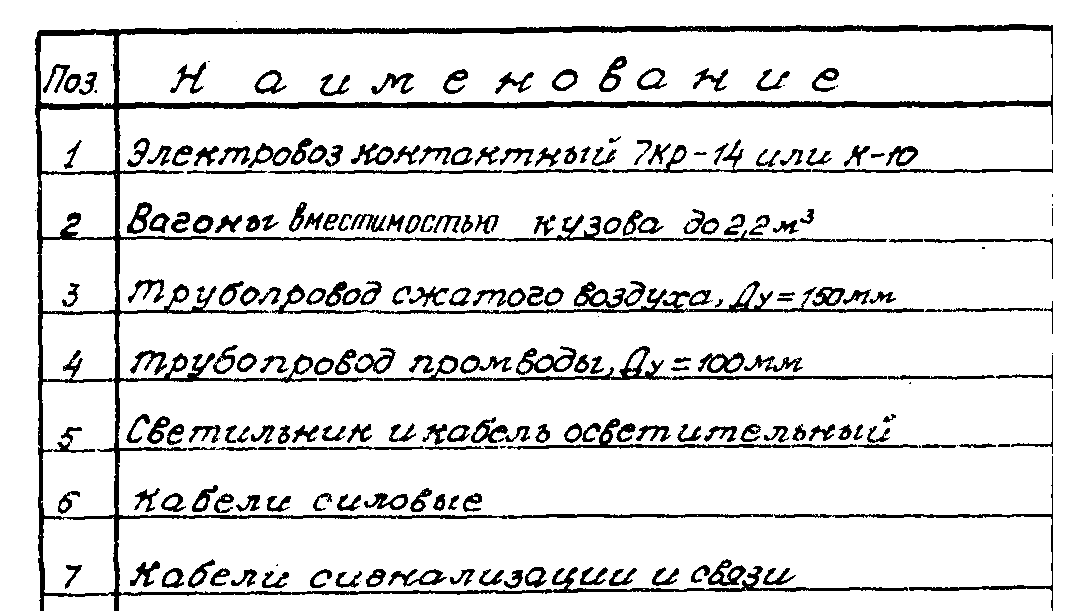 Поз. Наименование
1 Электровоз контактный 7КР-14 или К-10
2 Вагоны вместимостью кузова до 2,2 м³
3 Трубопровод сжатого воздуха, Ду=150мм
4 Трубопровод промводы, Ду=100мм
5 Светильник и кабель осветительный
6 Кабели силовые
7 Кабели сигнализации и связи